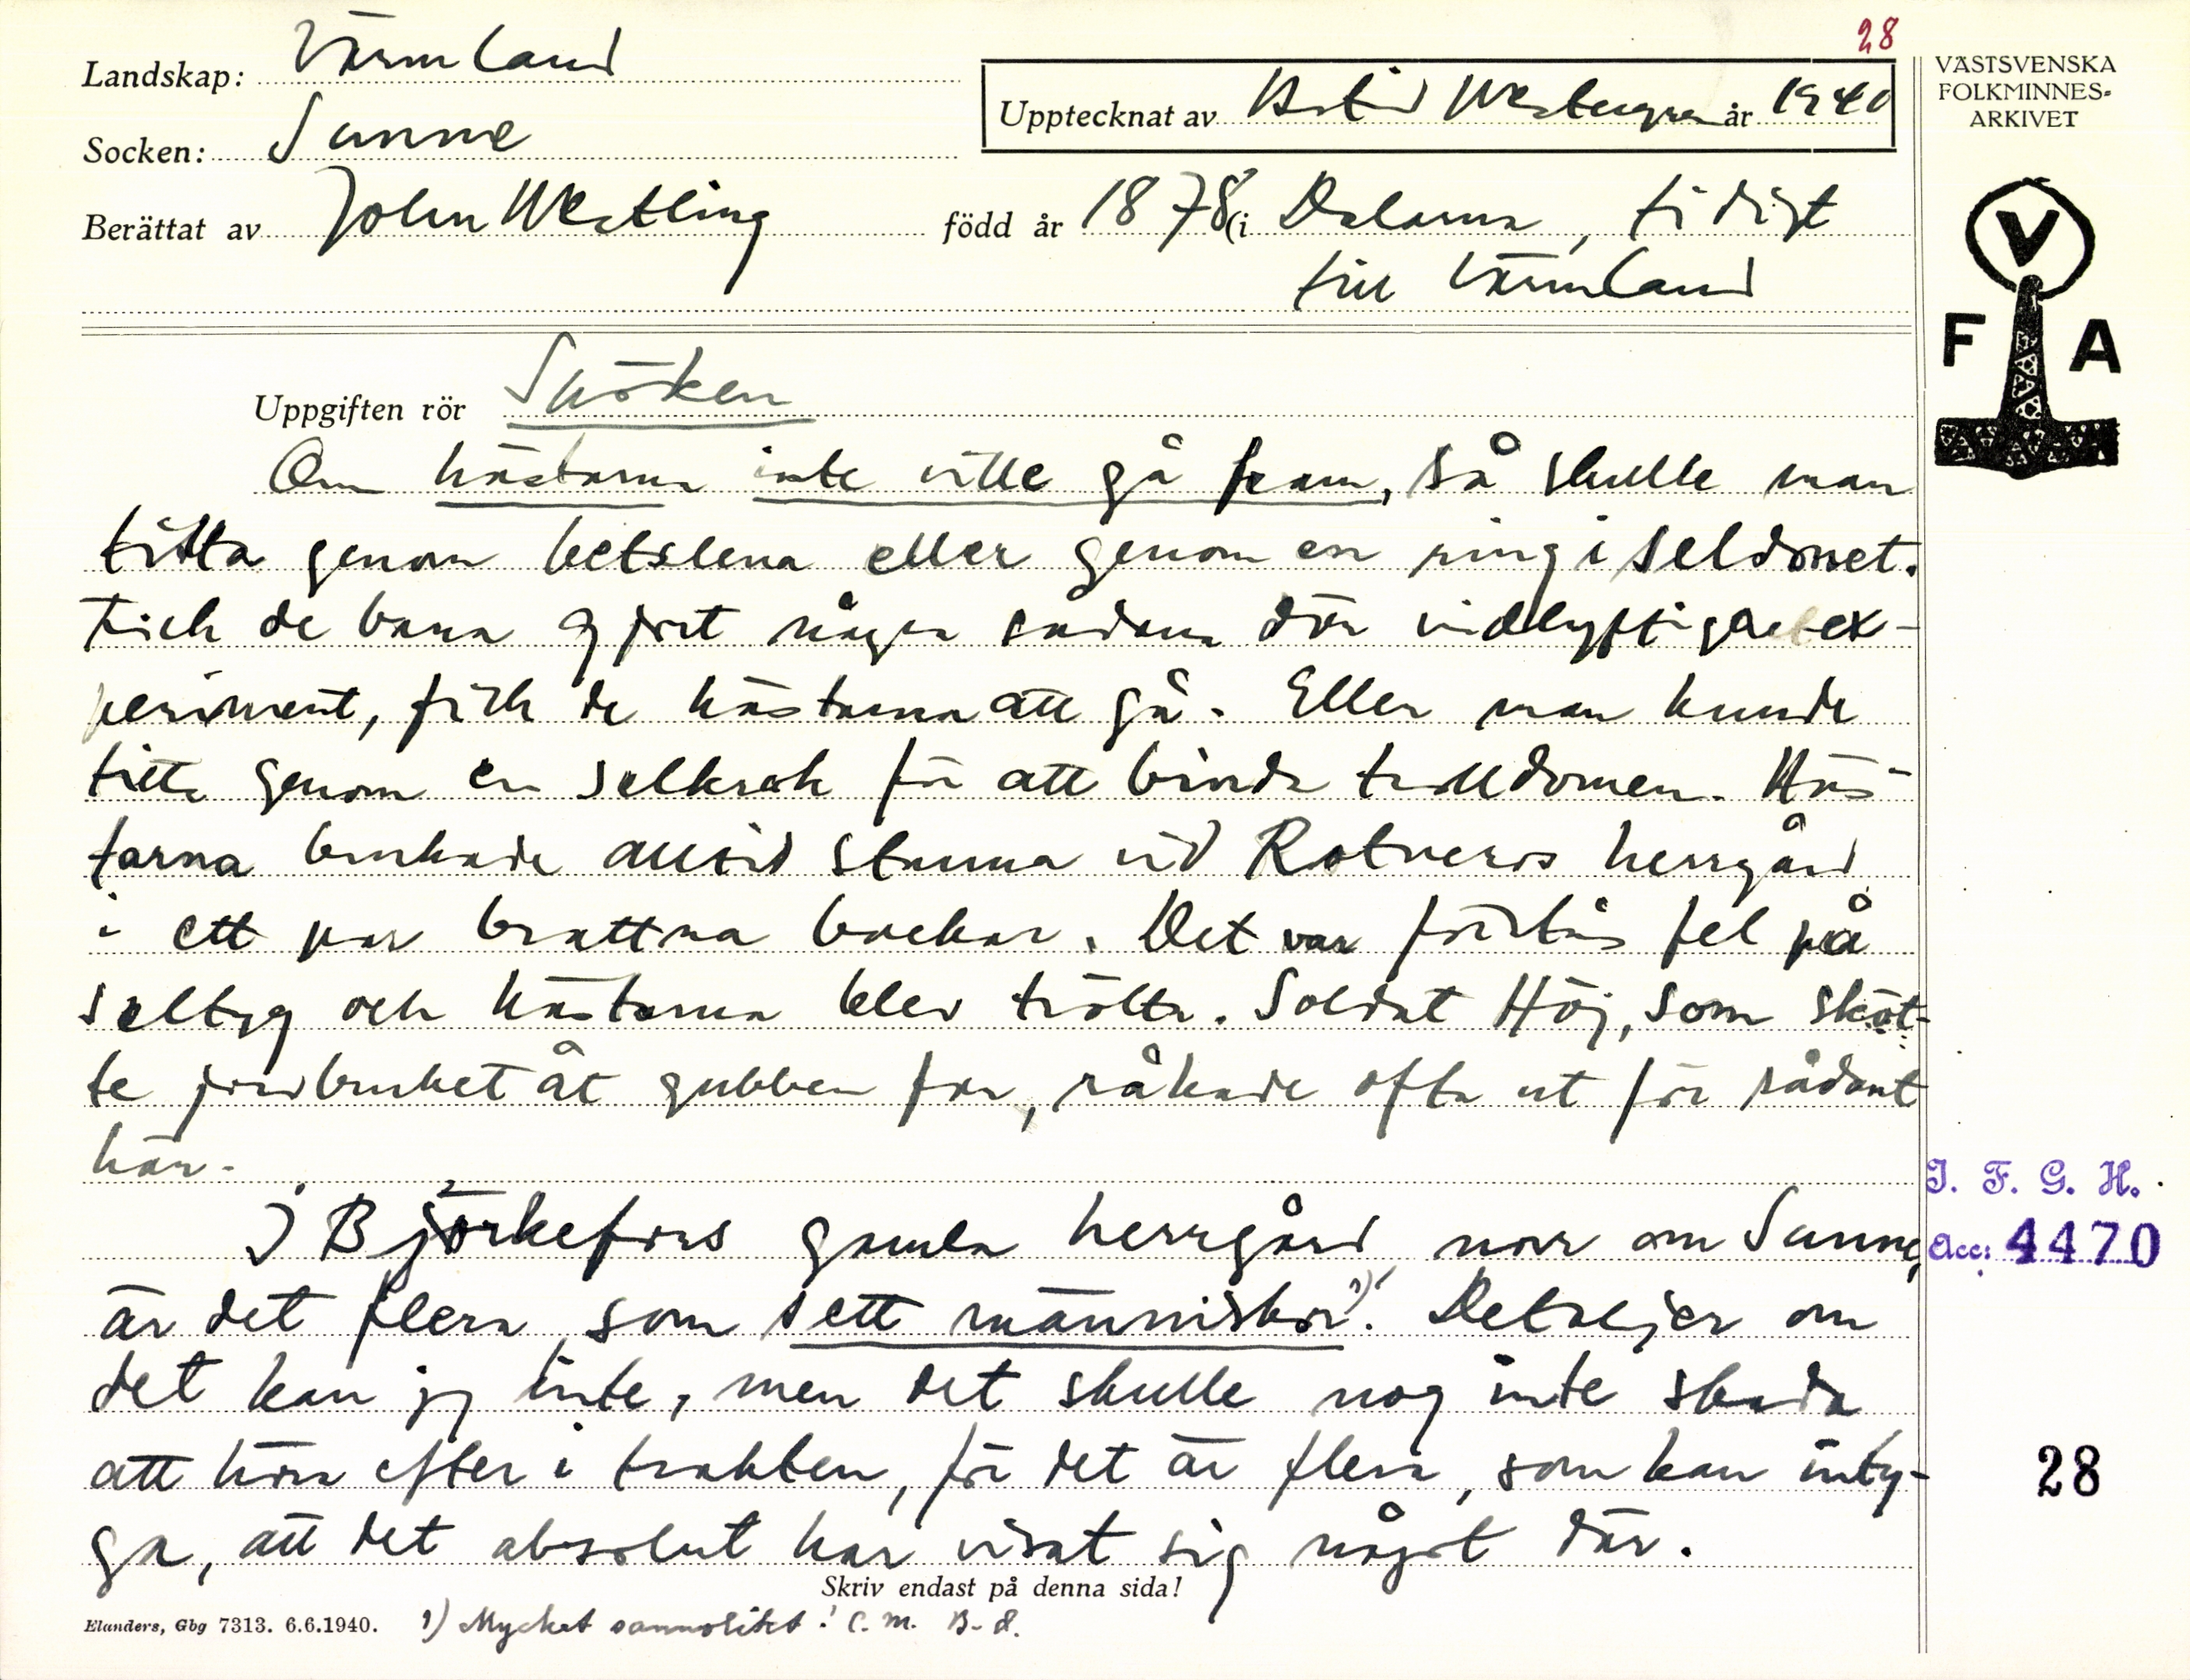 28
Landskap: Värmland
Socken: Sunne
Upptecknat av Astid Westergren år 1940
Berättat av John Westling född år 1878 (i Dalarna, tidigt
till Värmland
VÄSTSVENSKA
FOLKMINNES-
ARKIVET
V
F A
Uppgiften rör Spöken
Om hästarna inte ville gå fram, så skulle man
titta genom betslena eller genom en ring i seldonet.
Fick de bara gjort några sådana där vidlyftiga ex-
periment, fick de hästarna att gå. Eller man kunde
titta genom en selkrok för att binda trolldomen. Häs-
tarna brukade alltid stanna vid Rotneros herrgård
i ett par brattna backar. Det var förstås fel på
seltyg och hästarna blev trötta. Soldat Höj, som sköt-
te jordbruket åt gubben far, råkade ofta ut för sådant
här.
I Björkefors gamla herrgård norr om Sunne,
är det flera som sett människor 1)! Detaljer om
det kan jag inte, men det skulle nog inte skada
att höra efter i trakten, för det är flera, som kan inty-
ga, att det absolut har visat sig något där.
I. F. G. H.
Acc: 4470
28
Skriv endast på denna sida!
Elanders, Gbg 7313. 6.6.1940.
1) Mycket sannolikt! C. M. B-d.